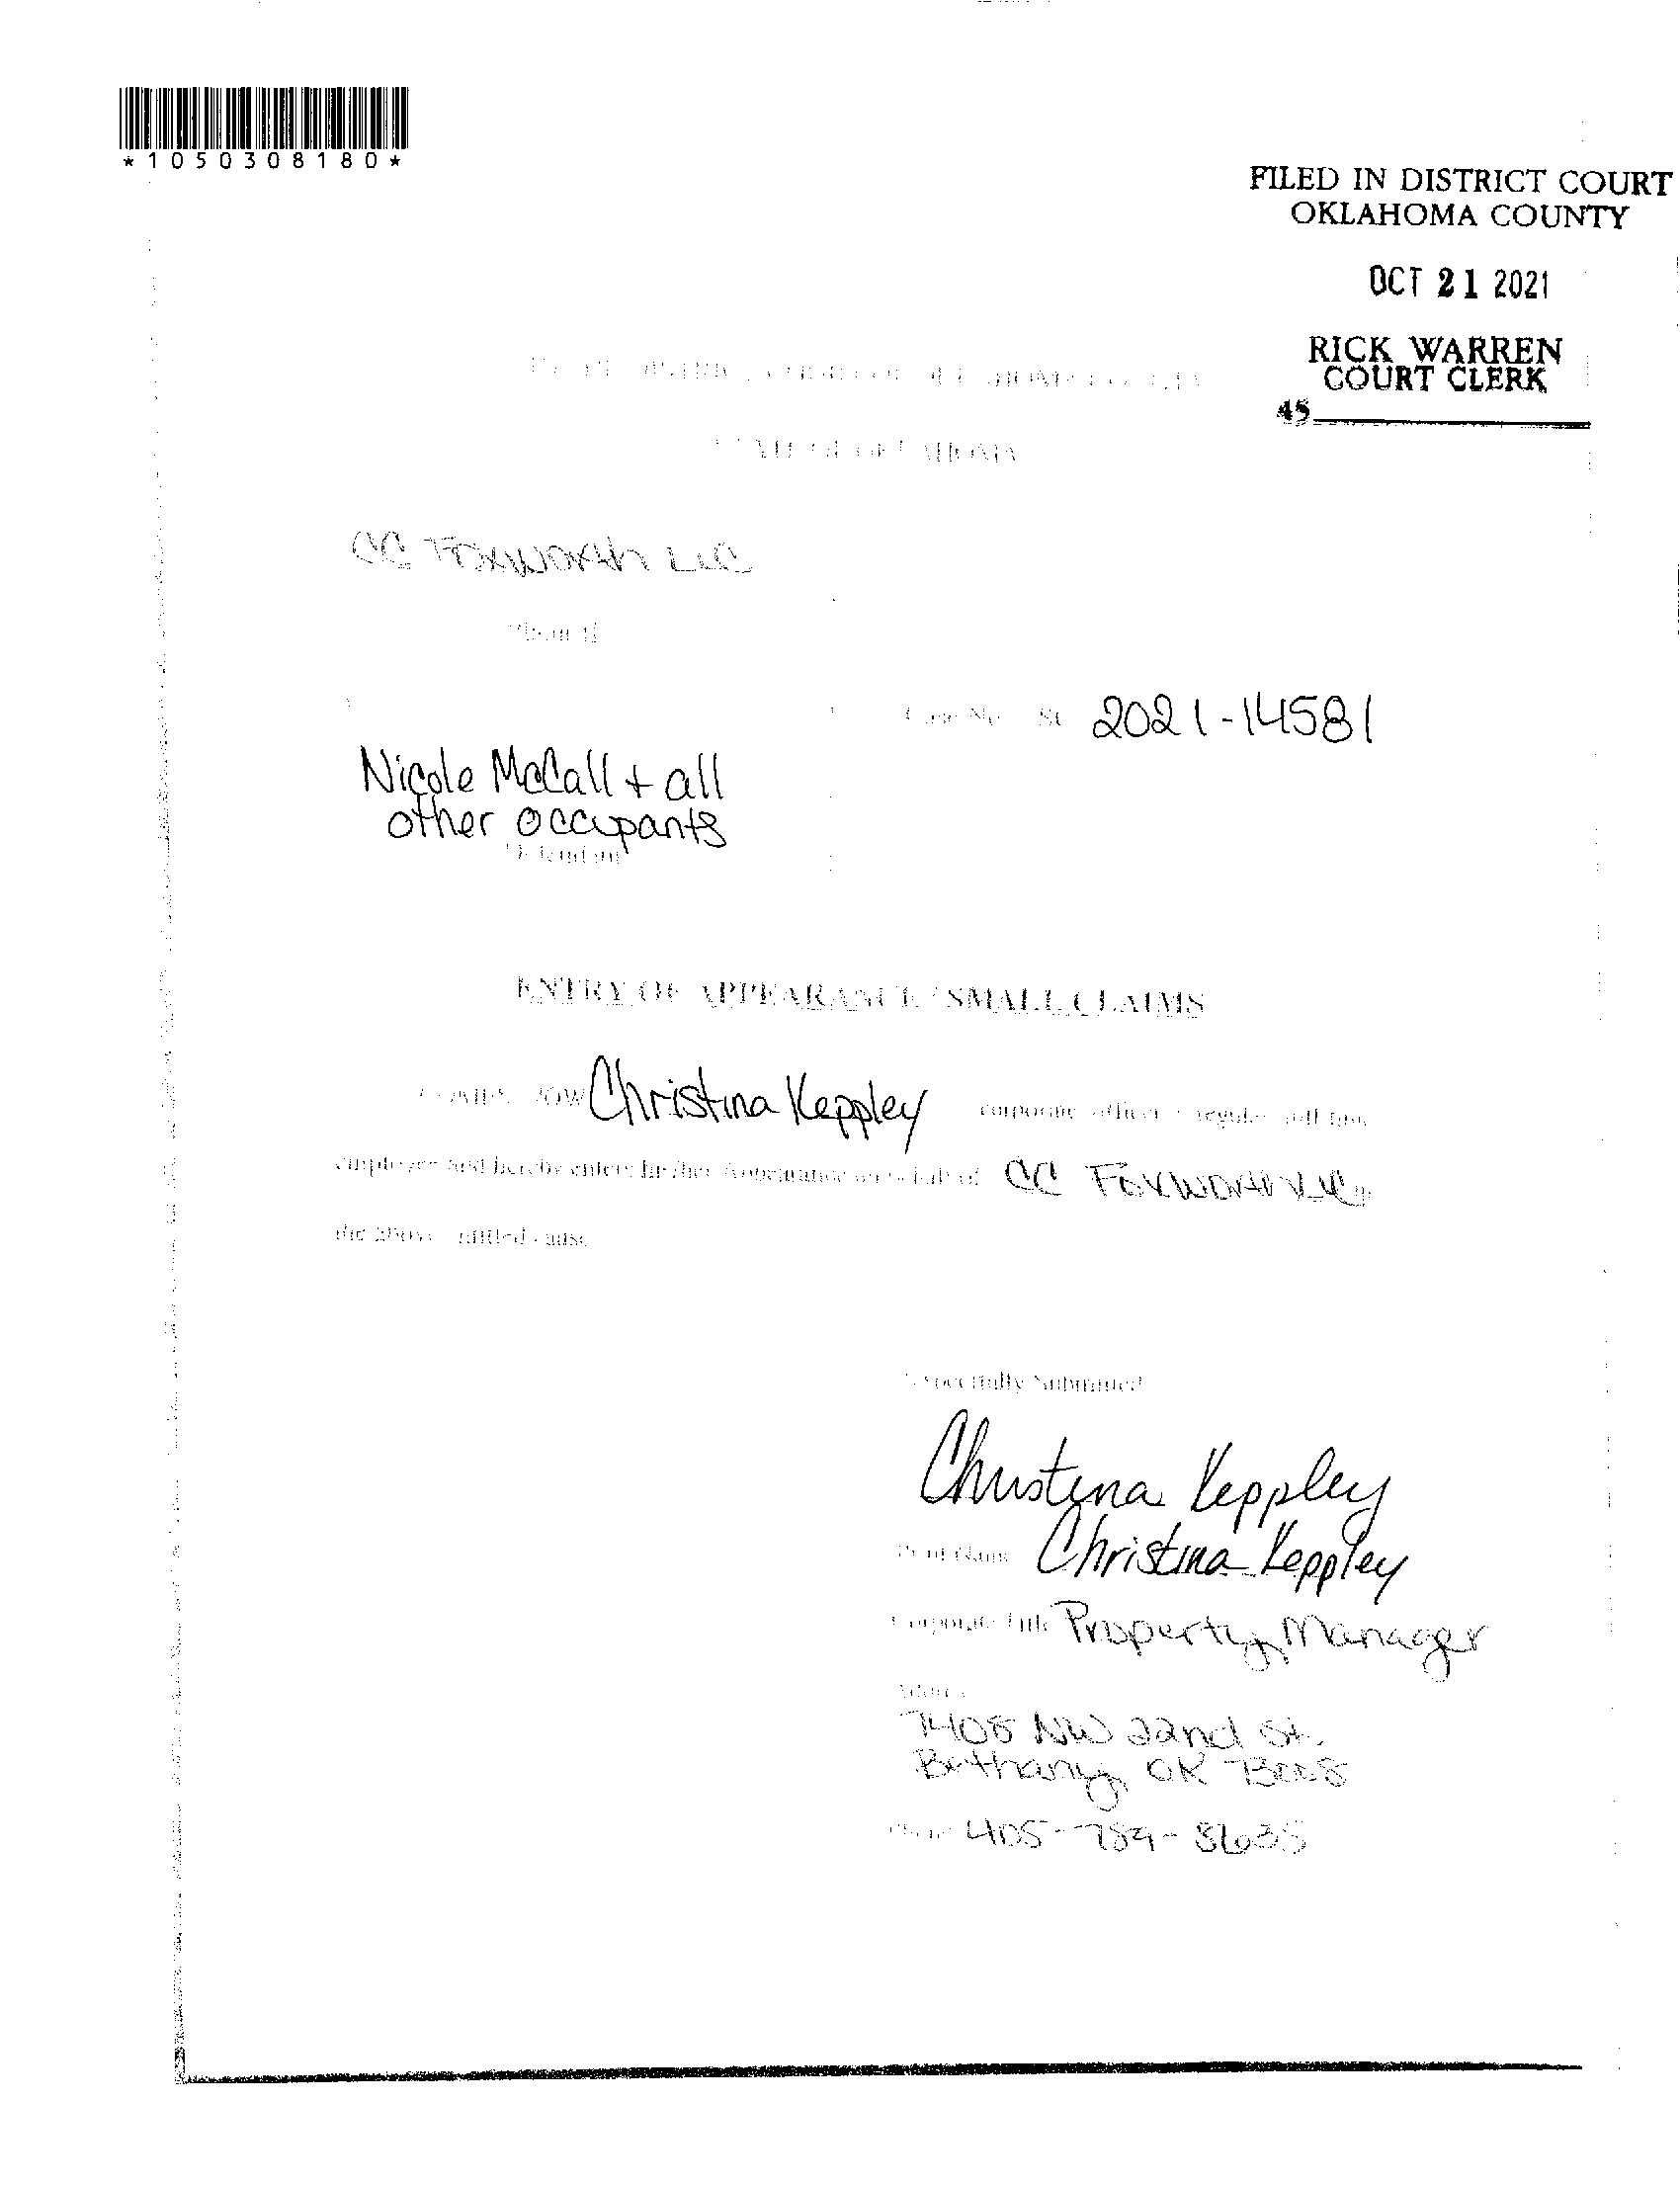 *1050308180*
FILED IN DISTRICT COURT
OKLAHOMA COUNTY
OCT 21 2021
RICK WARREN
COURT CLERK
45
STATE OF OKLAHOMA
CC Foxworth LLC
Plaintiff
Case No. SC 2021-14581
Nicole McCall + all
other occupants
Defendant
ENTRY OF APPEARANCE / SMALL CLAIMS
COMES NOW Christina Keppley corporate officer regular full time
employee and hereby enters his/her Appearance on behalf of CC Foxworth LLC in
the above entitled cause
Respectfully Submitted
Christina Keppley
Print Name Christina Keppley
Corporate Title Property Manager
Address
7408 NW 22nd St.
Bethany, OK 73008
Phone 405-789-8635